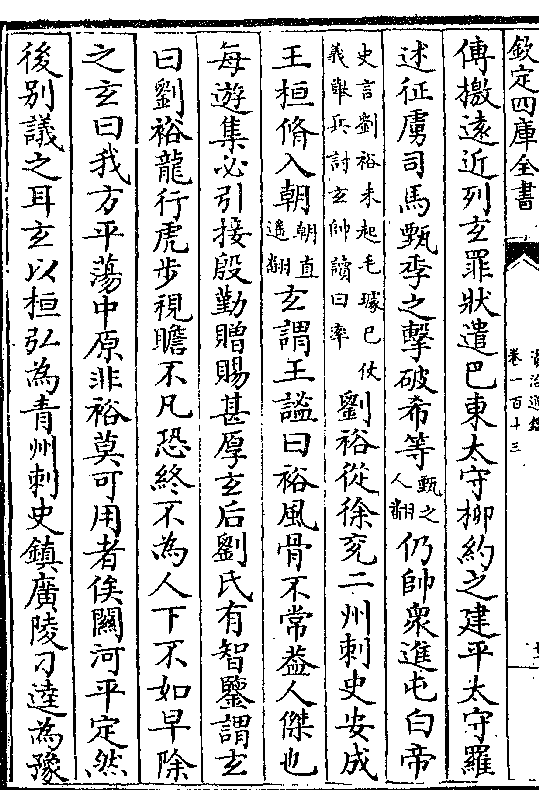 欽定四庫全書
資治通鑑
卷一百十三
傳檄遠近列玄罪狀遣巴東太守柳約之建平太守羅
述征虜司馬甄季之擊破希等甄之人翻仍帥衆進屯白帝
史言劉裕未起毛璩已仗義舉兵討玄帥讀曰率劉裕從徐兖二州刺史安成
王桓脩入朝朝直遥翻玄謂王謐曰裕風骨不常葢人傑也
每遊集必引接殷勤贈賜甚厚玄后劉氏有智鑒謂玄
曰劉裕龍行虎步視瞻不凡恐終不為人下不如早除
之玄曰我方平蕩中原非裕莫可用者俟關河平定然
後别議之耳玄以桓弘為青州刺史鎮廣陵刁逵為豫